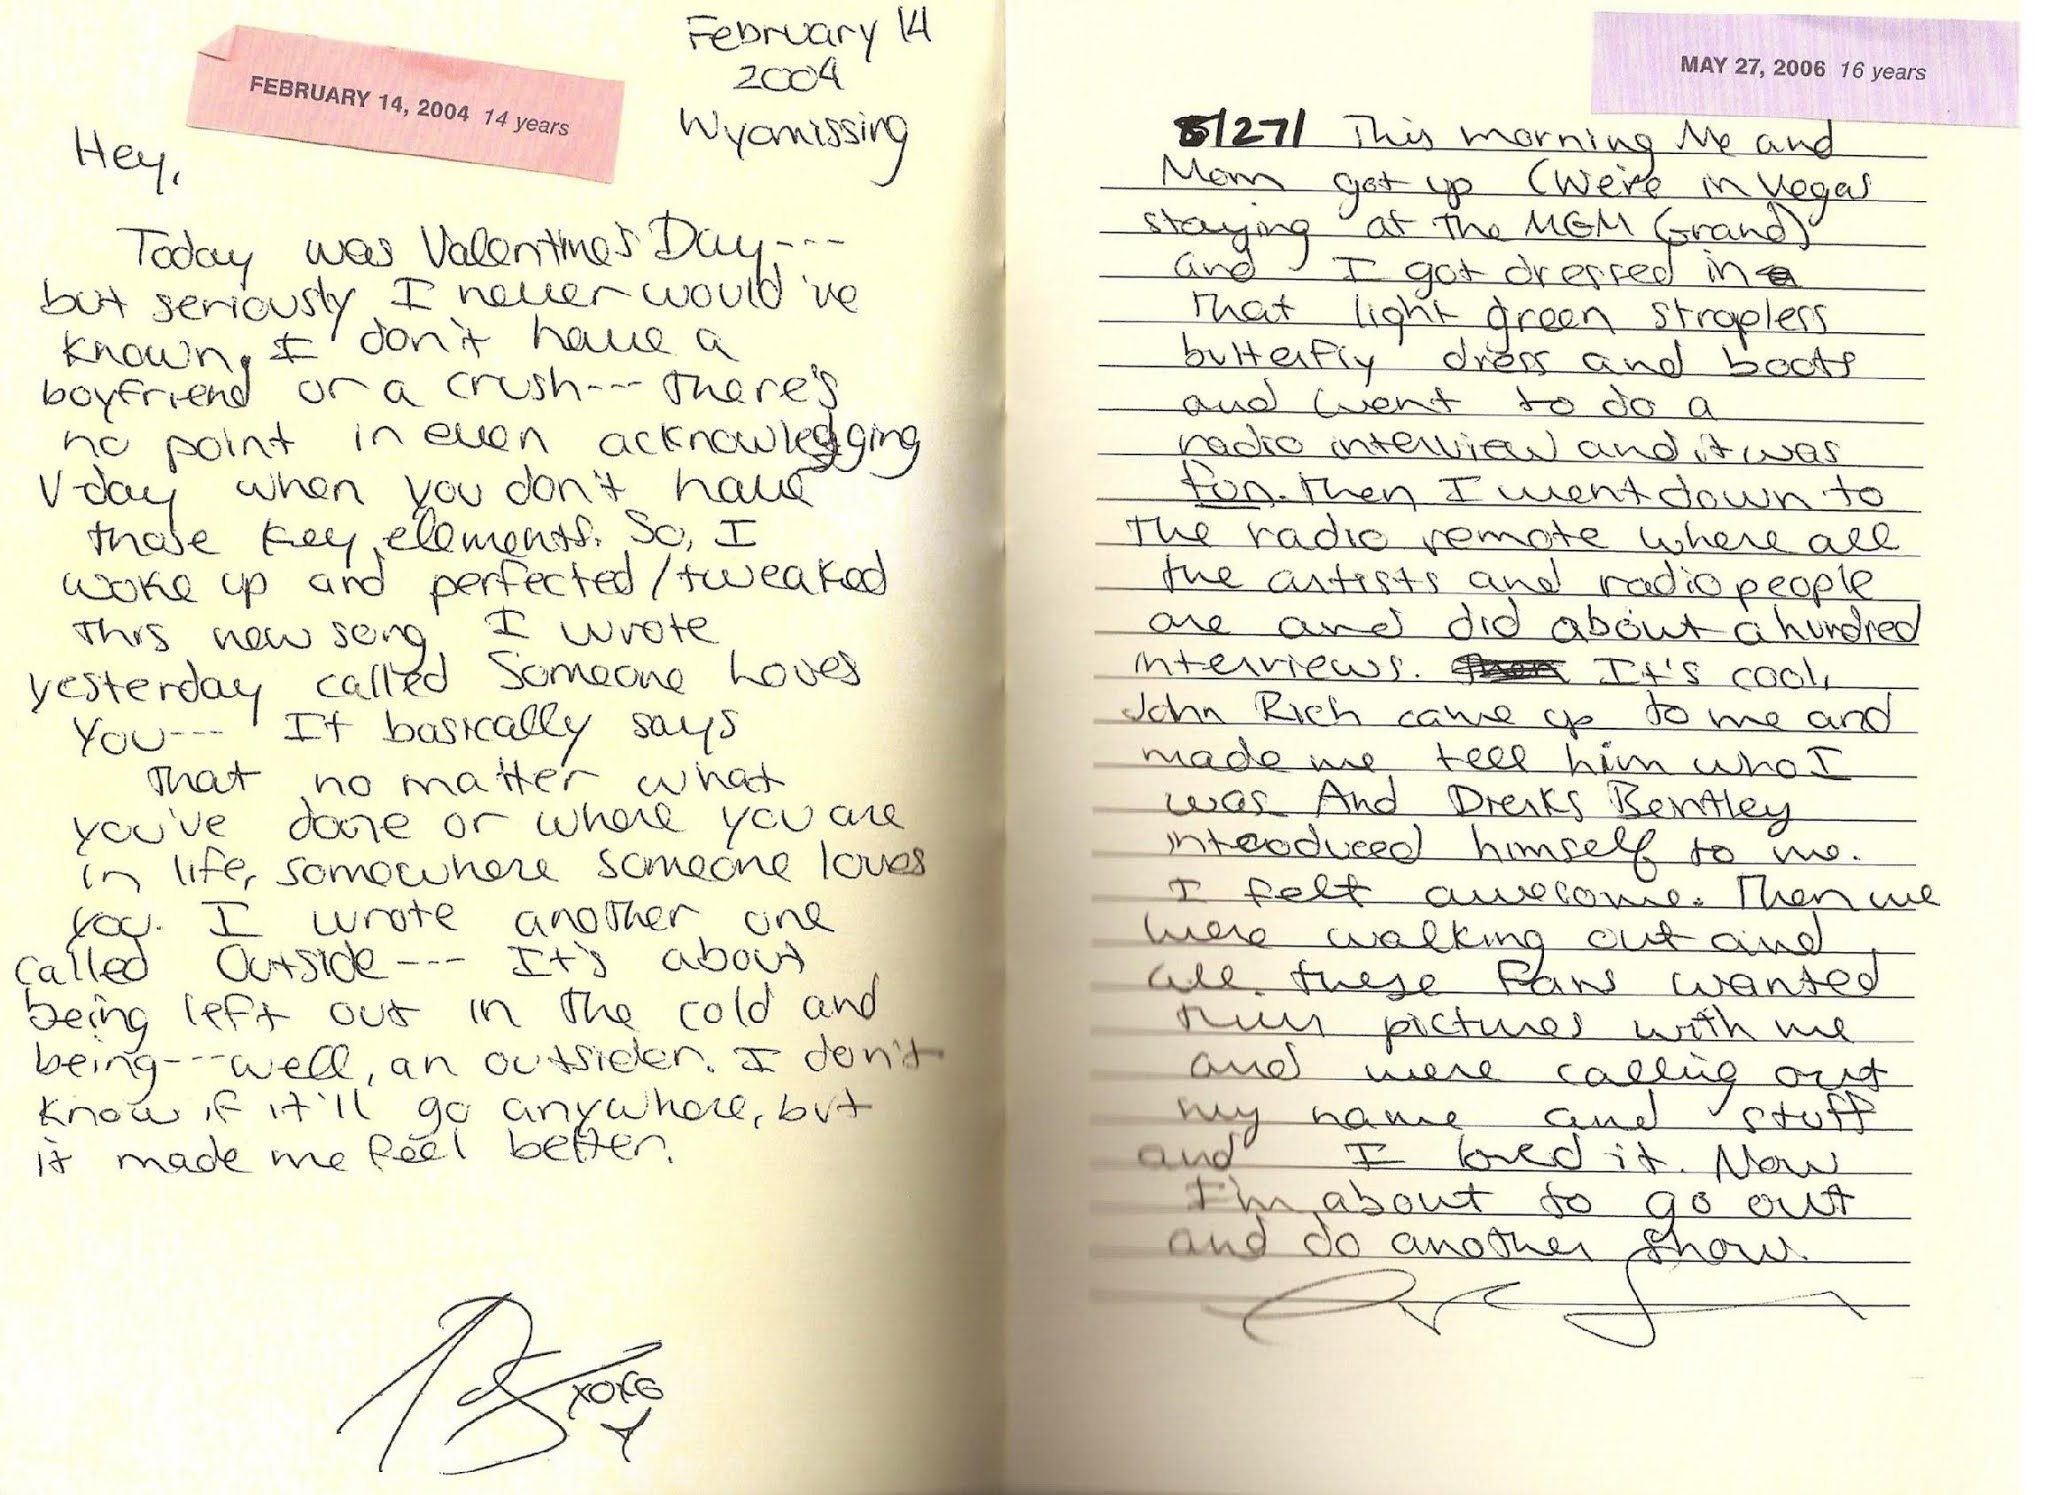 February 14
2004
Wyomissing
FEBRUARY 14, 2004 14 years
Hey,
Today was Valentine's Day---
but seriously I never would've
known. I don't have a
boyfriend or a crush--- There's
no point in even acknowledgging
V-day when you don't have
those key elements. So, I
woke up and perfected/tweaked
this new song I wrote
yesterday called Someone Loves
You--- It basically says
that no matter what
you've done or where you are
in life, somewhere someone loves
you. I wrote another one
called Outside--- It's about
being left out in the cold and
being---well, an outsider. I don't
know if it'll go anywhere, but
it made me feel better.
xoxo
MAY 27, 2006 16 years
5/27/ This morning Me and
Mom got up (We're in Vegas
staying at the MGM Grand)
and I got dressed in
that light green strapless
butterfly dress and boots
and went to do a
radio interview and it was
fun. Then I went down to
the radio remote where all
the artists and radio people
are and did about a hundred
interviews. It's cool,
John Rich came up to me and
made me tell him who I
was. And Dierks Bentley
introduced himself to me.
I felt awesome. Then we
were walking out and
all these fans wanted
their pictures with me
and were calling out
my name and stuff
and I loved it. Now
I'm about to go out
and do another show.